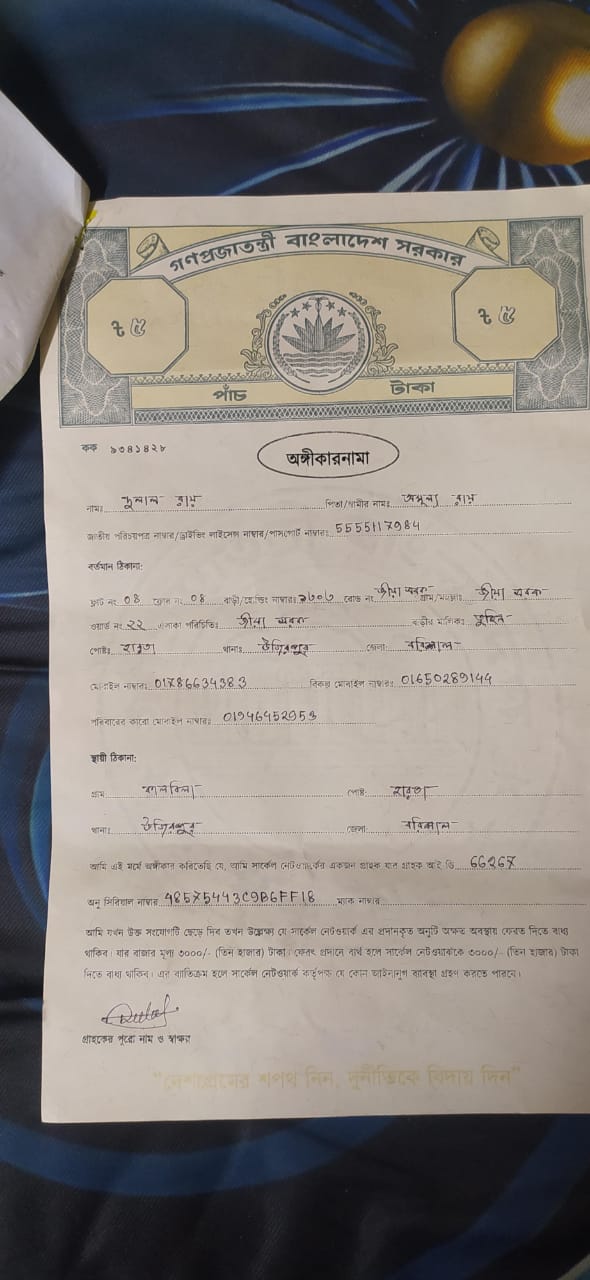 গণপ্রজাতন্ত্রী বাংলাদেশ সরকার
৳ ৫ ৳ ৫
পাঁচ টাকা
কক ৯৩৪১৪২৮
অঙ্গীকারনামা
নামঃ দুলাল রায় পিতা/স্বামীর নামঃ অমূল্য রায়
জাতীয় পরিচয়পত্র নাম্বার/ড্রাইভিং লাইসেন্স নাম্বার/পাসপোর্ট নাম্বারঃ 5555117984
বর্তমান ঠিকানা:
ফ্লাট নং 08 ফ্লোর নং 08 বাড়ী/হোল্ডিং নাম্বারঃ রোড নং গ্রাম/মহল্লাঃ
ওয়ার্ড নং ২২ এলাকা পরিচিতিঃ বাড়ীর মালিকঃ মুহিত
পোষ্টঃ হারতা থানাঃ উজিরপুর জেলাঃ বরিশাল
মোবাইল নাম্বারঃ 01786634383 বিকল্প মোবাইল নাম্বারঃ 01650289144
পরিবারের কারো মোবাইল নাম্বারঃ 01946452953
স্থায়ী ঠিকানা:
গ্রাম পোষ্ট: হারতা
থানাঃ উজিরপুর জেলা: বরিশাল
আমি এই মর্মে অঙ্গীকার করিতেছি যে, আমি সার্কেল নেটওয়ার্কের একজন গ্রাহক যার গ্রাহক আই ডি
অনু সিরিয়াল নাম্বার 48575443C9B6FF18 ম্যাক নাম্বার
আমি যখন উক্ত সংযোগটি ছেড়ে দিব তখন উল্লেখ্য যে সার্কেল নেটওয়ার্ক এর প্রদানকৃত অনুটি অক্ষত অবস্থায় ফেরত দিতে বাধ্য
থাকিব। যার বাজার মূল্য ৩০০০/- (তিন হাজার) টাকা। ফেরৎ প্রদানে ব্যর্থ হলে সার্কেল নেটওয়ার্ককে ৩০০০/- (তিন হাজার) টাকা
দিতে বাধ্য থাকিব। এর ব্যতিক্রম হলে সার্কেল নেটওয়ার্ক কর্তৃপক্ষ যে কোন আইনানুগ ব্যবস্থা গ্রহণ করতে পারবে।
গ্রাহকের পুরো নাম ও স্বাক্ষর
"দেশপ্রেমের শপথ নিন, দুর্নীতিকে বিদায় দিন"